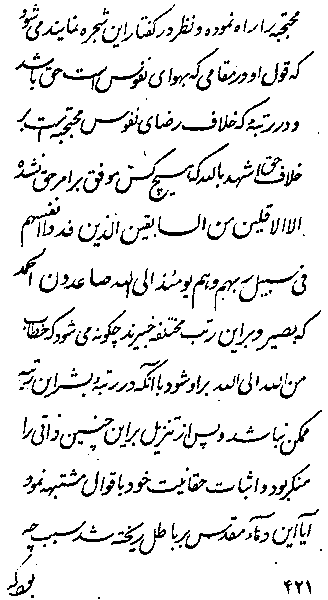 محتجبه را راه نموده و نظر در گفتار این شجره نمایند می شود
که قول او در مقامی که بهوای نفوس است حق باشد
و در رتبهٔ که خلاف رضای نفوس محتجبه است بر
خلاف حق اشهد بالله که هیچ کس موفق بر امر حق نشده
الا الاقلین من السابقین الذین فدوا انفسهم
فی سبیل ربهم و هم یومئذ الی الله صاعدون الحمد
که بصیر و بر این رتب مختلفه خبیرند چگونه می شود که خطاب
من الله الی الله بر او شود با آنکه در رتبهٔ بشر این رتبه
ممکن نباشد و پس از تنزیل بر این چنین ذاتی را
منکر بود و اثبات حقانیت خود باقوال مشتبه نمود
آیا این دماء مقدس بر باطل ریخته شد سبب چه
بود که
۴۲۱